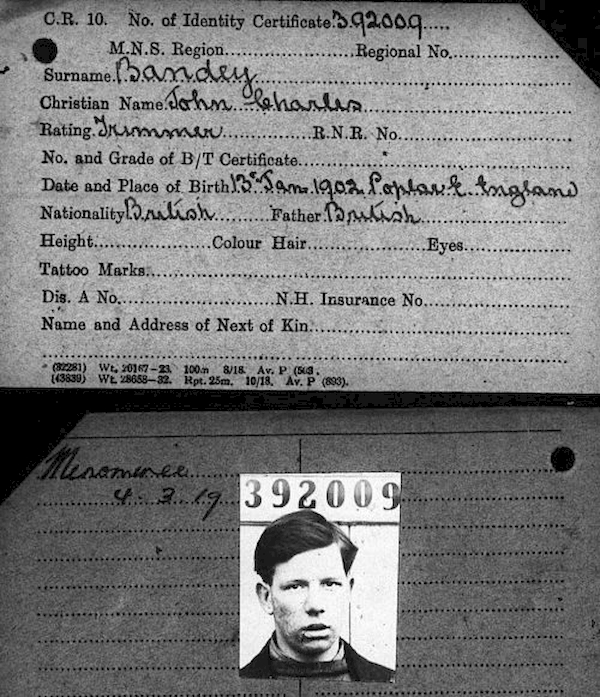 C.R. 10. No. of Identity Certificate.392009.....
M.N.S. Region........................Regional No....................
Surname.Bandey
Christian Name.John Charles
Rating.Trimmer................R.N.R. No.
No. and Grade of B/T Certificate.
Date and Place of Birth 13 Jan 1902 Poplar E. England
Nationality British.........Father.British
Height....................Colour Hair....................Eyes....................
Tattoo Marks.
Dis. A No..........................N.H. Insurance No.
Name and Address of Next of Kin.
(82281) Wt. 20167—23. 100m 8/18. Av. P (503.
(43839) Wt. 28658—32. Rpt. 25m. 10/18. Av. P (893).
Menominee
4. 3. 19.
392009